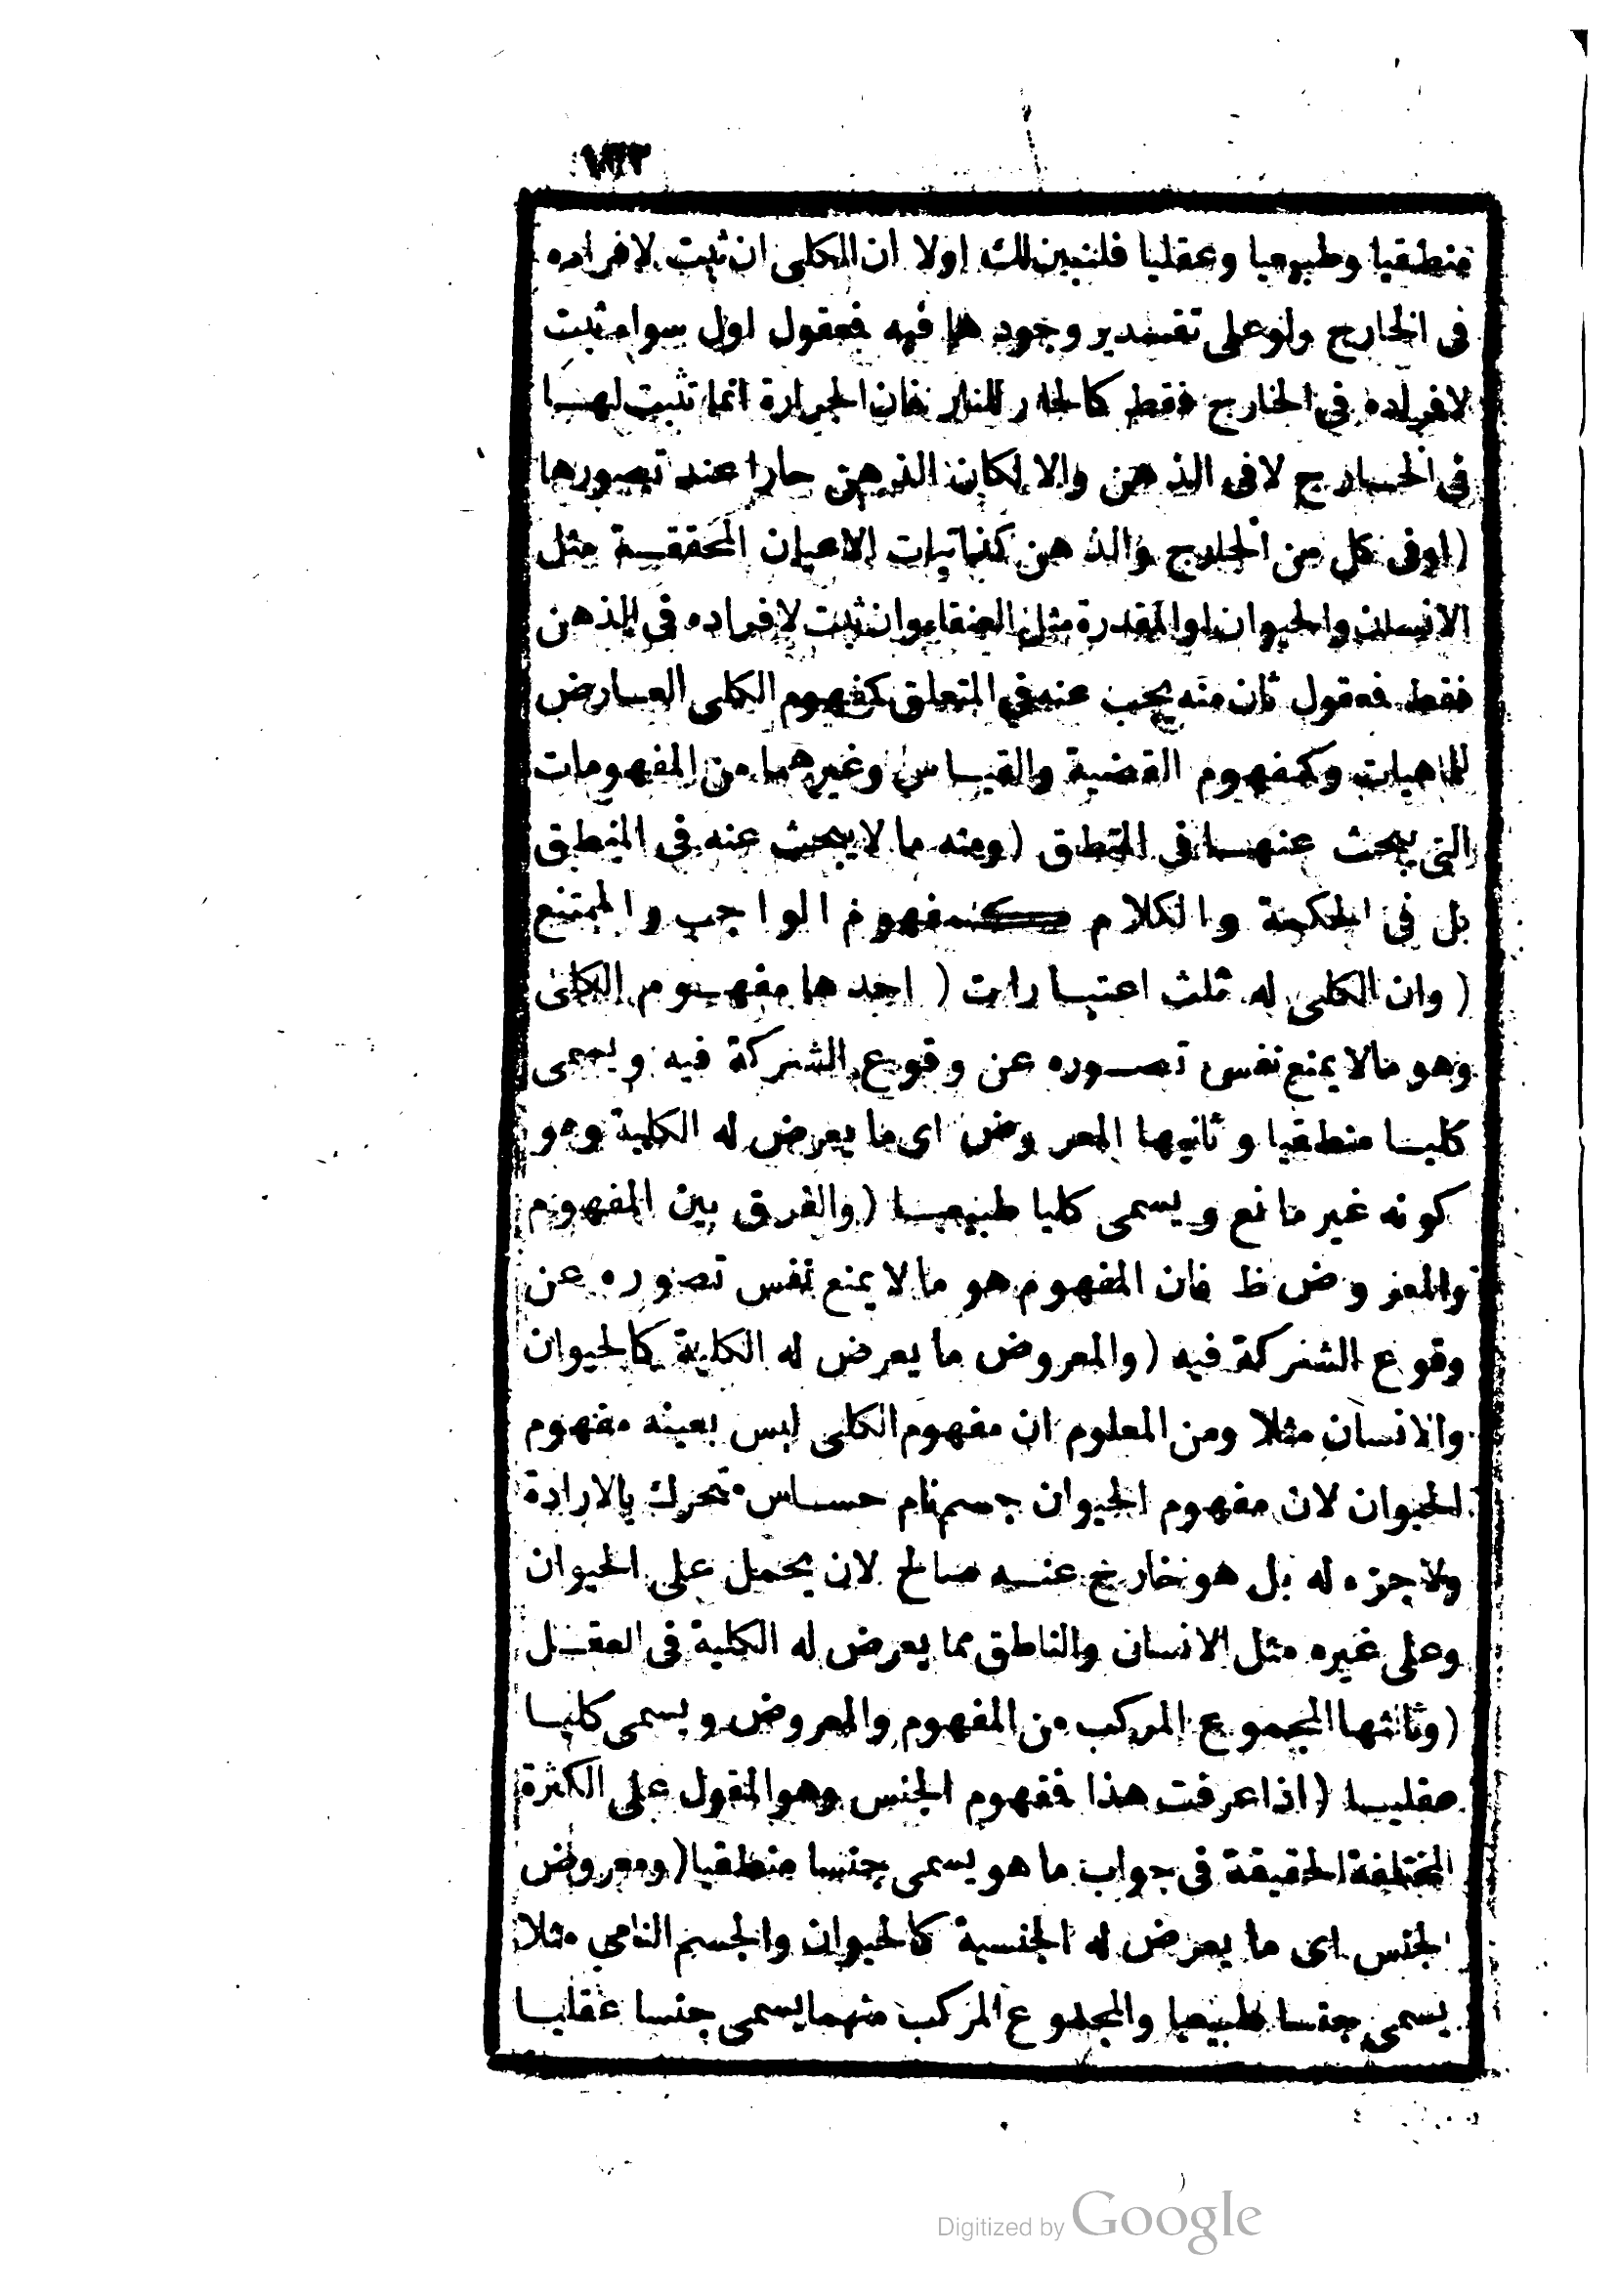 منطقيا وطبيعيا وعقليا فلنبين لك اولا ان الكلى ان ثبت لافراده
فى الخارج ولو على تقدير وجودها فيه فمعقول اول سواء ثبت
لافراده فى الخارج فقط كالحار للنار فان الحرارة انما تثبت لها
فى الخارج لا فى الذهن والا لكان الذهن حارا عند تصورها
(اوفى كل من الخارج والذهن كذاتيات الاعيان المحققة مثل
الانسان والحيوان او المقدرة مثل العنقاء وان ثبت لافراده فى الذهن
فقط فمعقول ثان منه يبحث عنه فى المنطق كمفهوم الكلى العارض
للماهيات وكمفهوم القضية والقياس وغيرهما من المفهومات
التى يبحث عنها فى المنطق (ومنه ما لا يبحث عنه فى المنطق
بل فى الحكمة والكلام كمفهوم الواجب والممتنع
(وان الكلى له ثلث اعتبارات (احدها مفهوم الكلى
وهو مالا يمنع نفس تصوره عن وقوع الشركة فيه ويسمى
كليا منطقيا وثانيها المعروض اى ما يعرض له الكلية وهو
كونه غير مانع ويسمى كليا طبيعيا (والفرق بين المفهوم
والمعروض ظ فان المفهوم هو ما لا يمنع نفس تصوره عن
وقوع الشركة فيه (والمعروض ما يعرض له الكلية كالحيوان
والانسان مثلا ومن المعلوم ان مفهوم الكلى ليس بعينه مفهوم
الحيوان لان مفهوم الحيوان جسم نام حساس متحرك بالارادة
ولا جزء له بل هو خارج عنه صالح لان يحمل على الحيوان
وعلى غيره مثل الانسان والناطق مما يعرض له الكلية فى العقل
(وثالثها المجموع المركب من المفهوم والمعروض ويسمى كليا
عقليا (اذا عرفت هذا فمفهوم الجنس وهو المقول على الكثرة
المختلفة الحقيقة فى جواب ما هو يسمى جنسا منطقيا (ومعروض
الجنس اى ما يعرض له الجنسية كالحيوان والجسم النامى مثلا
يسمى جنسا طبيعيا والمجموع المركب منهما يسمى جنسا عقليا
Digitized by Google